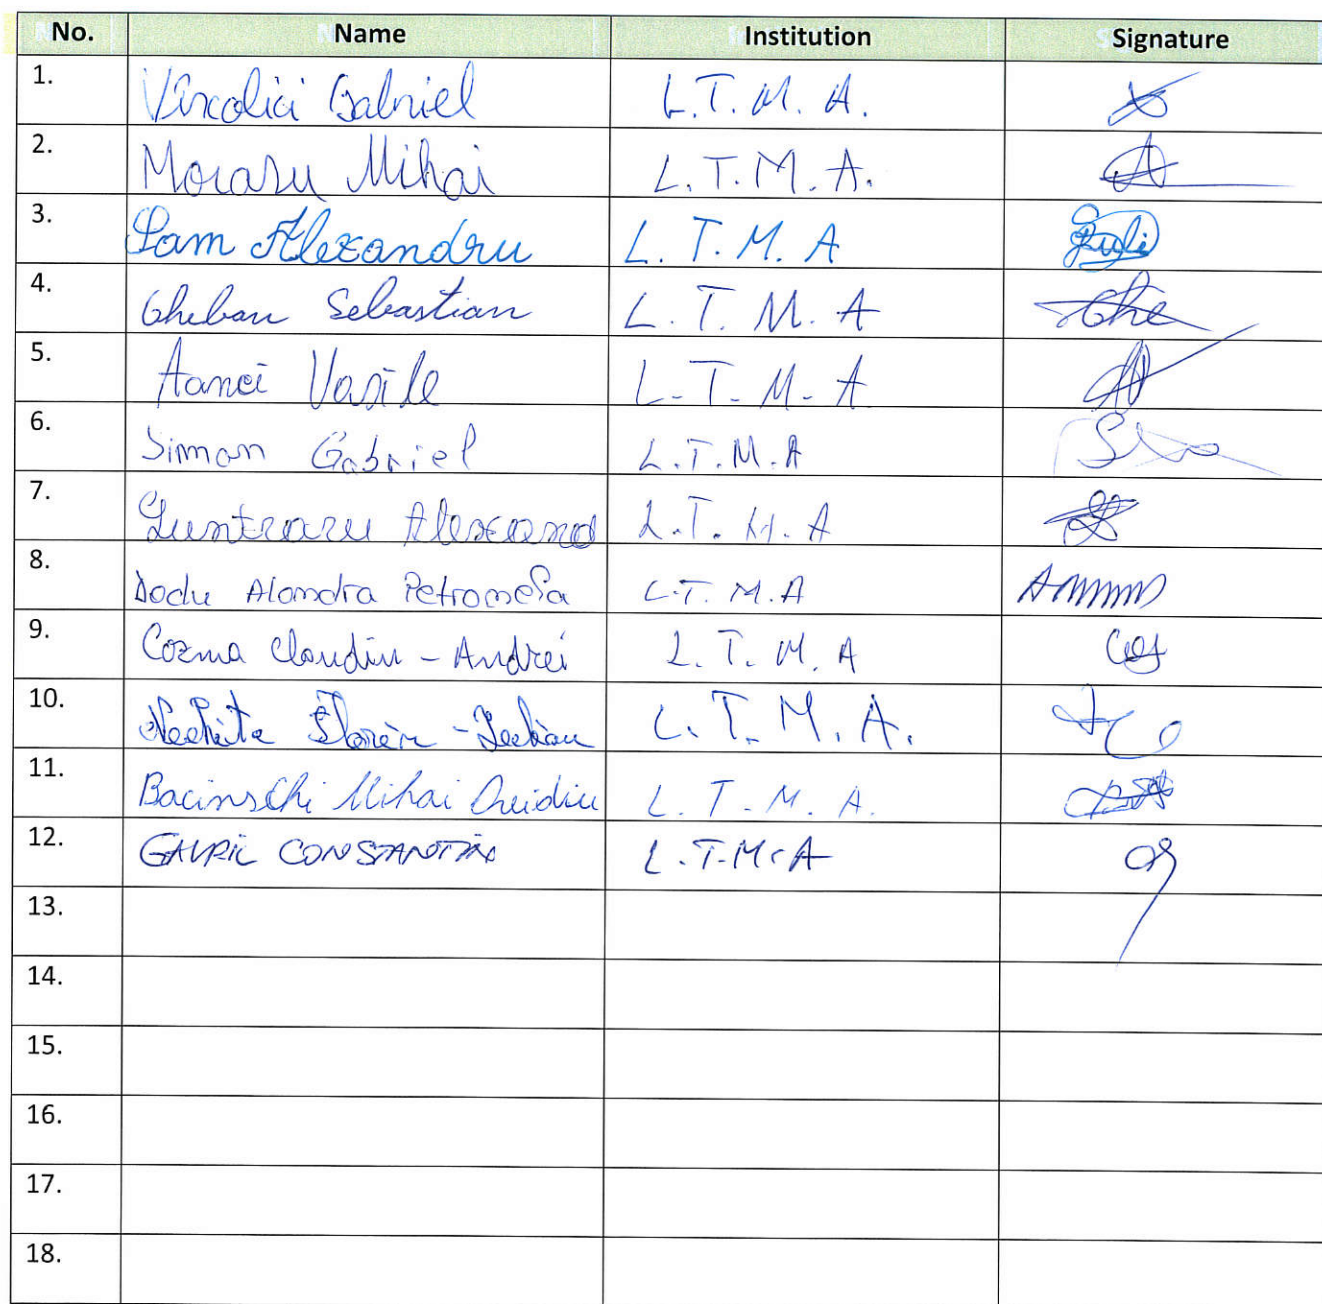 No. Name Institution Signature
1. Vircolici Gabriel L.T.M.A.
2. Morasu Mihai L.T.M.A.
3. Sam Alexandru L.T.M.A
4. Gheban Sebastian L.T.M.A
5. Aanei Vasile L.T.M.A
6. Simon Gabriel L.T.M.A
7. L.T.M.A
8. Dodu Petronela L.T.M.A
9. Cozma Claudiu-Andrei L.T.M.A
10. Nechita Florin- L.T.M.A.
11. Bacinschi Mihai Ovidiu L.T.M.A.
12. GAVRIL CONSTANTIN L.T.M.A
13.
14.
15.
16.
17.
18.